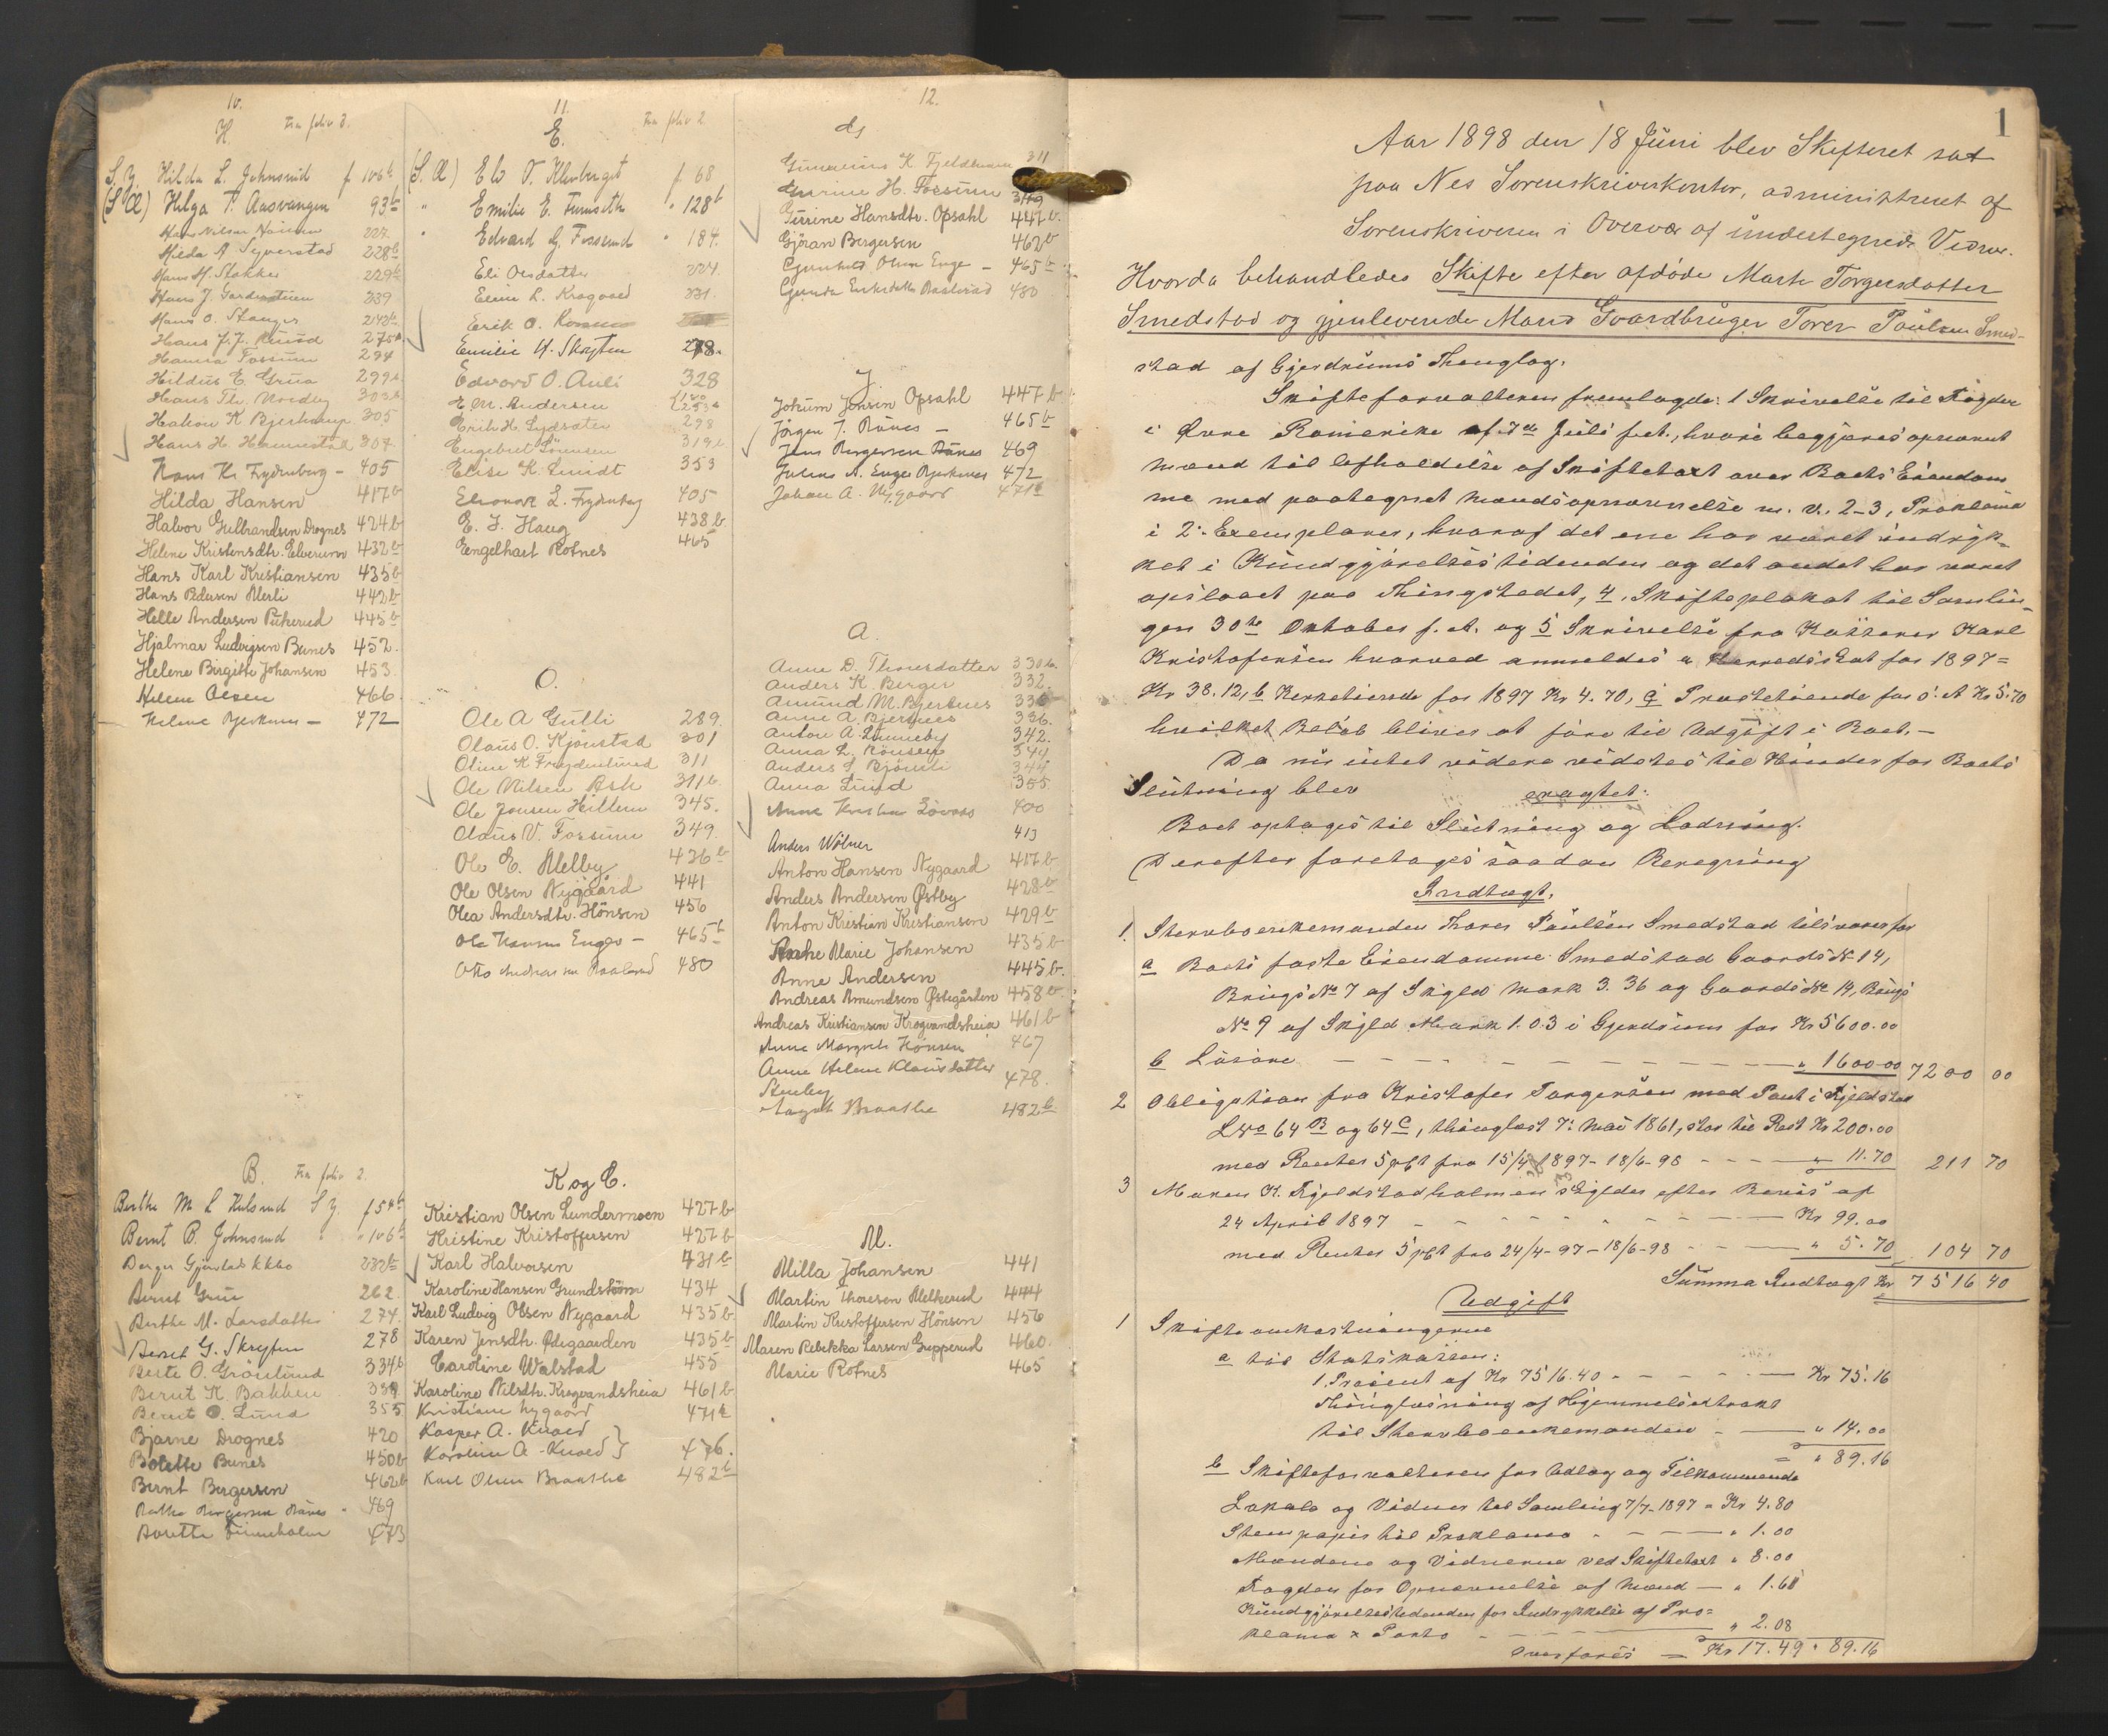 10.
H.
Fra folio 3.
S.Y. Hilda L. Johnsrud f 106b
(S Æ) Helga T. Aasvangen 93b
Hans Nilsen 227.
Hilda A Syverstad 228b
Hans H. Stokker 229b
Hans J. Garderstuen 239
Hans O. Stanger 242b
Hans J. J. Ruud 275b
Hanna Fossum 294
Hildus E. Grua 299b
Hans Th. Nordby 303b
Hakon K Bjerkenes 305
Hans H. Hammerstad 307.
Hans Kr. Frydenberg - 405
Hilda Hansen 417b
Halvor Gulbrandsen Drognes 424b
Helene Kristensdtr. Elverum 432b
Hans Karl Kristiansen 435b
Hans Pedersen Merli 442b
Helle Andersen Pukerud 445b
Hjalmar Ludvigsen Bunes 452.
Helene Birgitte Johansen 453.
Helene Olsen 466
Helene Bjerknes - 472
B. Fra folio 2.
Berthe M L Hulsrud S Y. f 54b
Bernt B. Johnsrud " 106b
Berger Gjerdal 232b
Bernt Grue 262.
Berthe M. Larsdatter 274.
Bernt G. Skryten 278
Berte O. Grönlund 334b
Bernt K. Bakken 389
Bernt O. Lund 355
Bjarne Drognes 420
Bolette Bunes 450b
Bernt Bergersen 462b
Berthe Bergersen Rånes - 469
Borette Finneholm 473
11.
E.
Fra folio 2
(S. Æ) Eli O. Kleverget f. 68
" Emilie E. Funnseth " 128b
" Edvard G. Fossund " 184.
Eli Olsdatter 224.
Elim L. Krogvold 231.
Erik O.
Emilie H. Skryten 278.
Edvard O. Auli 328
E. M. Andersen 180 253b
Erik H. Lydsæter 298
Engebret Sörensen 319b
Elise K. Lundt 353
Elenore L. Frydenberg 405
E. J. Haug 438b
Engelhart Rotnes 465
O.
Ole A Gulli 289.
Olaus O. Kjönstad 301
Oline K Frydenlund 311
Ole Nilsen Ask 311b
Ole Jonsen Heitlem 345.
Olaus V. Fossum 349.
Ole E. Melby 426b
Ole Olsen Nygaard 441
Olea Andersdtr. Hönsen 456
Ole Hansen Enger - 465b
Otto Andreassen Raalerud 480
K og C.
Kristian Olsen Lundermoen 427b
Kristine Kristoffersen 427b
Karl Halvorsen 431b
Karoline Hansen Grundström 434
Karl Ludvig Olsen Nygaard 435b
Karen Jensdtr. Ødegaarden 435b
Caroline Walstad 455
Karoline Nilsdtr. Krogvandsheia 461b
Kristiane Nygaard 471b
Kasper A. Knoed }
Karoline A - Knoed } 476.
Karl Olsen Braathe 482b
12.
G
Gunnerius K. Fjeldhusen 311
Gurine H. Fossum 349
Gurine Hansdtr. Opsahl 447b
Gjöran Bergersen 462b
Gunhild Olsen Enger - 465b
Gunda Eriksdatter Raalerud 480
J
Johum Jonsen Opsahl 447b
Jörgen J. Rånes - 465b
Jens Bergersen Rånes 469
Julius A. Enger Bjerknes 472
Johan A. Nygaard 471b
A.
Anne D. Thoresdatter 330b
Anders K. Berger 332.
Amund M. Bjerknes 336
Anne A. Bjerknes 336.
Anton A. Lunneby 342.
Anna L. Hönsen 344
Anders S Bjönli 344
Anna Lund 355.
Anne Kristine Lövaas 400
Anders Wölner 413
Anton Hansen Nygaard 417b
Anders Andersen Østby 428b
Anton Kristian Kristiansen 429b
Anne Marie Johansen 435b
Anne Andersen 445b.
Andreas Amundsen Østegården 458b
Andreas Kristiansen Krogvandsheia 461b
Anne Margrete Hönsen 467
Anne Helene Klausdatter
Stenby 478.
August Braathe 482b
M.
Milla Johansen 441
Martin Thoresen Melkerud 444
Martin Kristoffersen Hönsen 456
Maren Rebekka Larsen Gupperud 460.
Marie Rotnes 465
1
Aar 1898 den 18 Juni blev Skifteret sat
paa Nes Sorenskriverkontor, administreret af
Sorenskriveren i Overvær af undertegnede Vidner.
Hvorda behandledes Skifte efter afdøde Marte Torgersdatter
Smedstad og gjenlevende Mand Gaardbruger Torer Paulsen Smed-
stad af Gjerdrums Thinglag.
Skifteforvalteren fremlagde: 1 Skrivelse til Fogden
i Øvre Romerike af 7de Juli f.A., hvori begjæres opnævnt
Mænd til Afholdelse af Skiftetaxt over Boets Eiendom
me med paategnet Mændsopnævnelse m. v. 2-3, Proklama
i 2: Exemplarer, hvoraf det ene har været indryk-
ket i Kundgjørelsestidenden og det andet har været
opslaaet paa Thingstedet, 4, Skifteplakat til Samlin-
gen 30te Oktober f. A. og 5 Skrivelse fra Kasserer Karl
Kristofersen hvorved anmeldes a Herredsskat for 1897 =
Kr 38.12, b Kirketiende for 1897 Kr 4.70, c Præstetiende for s. A Kr 5.70
hvilket Beløb bliver at føre til Udgift i Boet. -
Da nu intet videre vidstes til Hinder for Boets
Slutning blev eragtet:
Boet optages til Slutning og Lodning.
Derefter foretages saadan Beregning
Indtægt.
1. Stervboenkemanden Thorer Paulsen Smedstad tilsvarer for
a Boets faste Eiendomme Smedstad Gaards No 14,
Brugs No 7 af Skyld Mark 3.36 og Gaards No 14, Brugs
No 9 af Skyld Mark 1.03 i Gjerdrum for Kr 5600.00
b Løsøre - - - " 1600.00 7200 00
2 Obligation fra Kristofer Torgersen med Pant i Kjeldstad
LNo 64 B og 64 C, thinglæst 7: Mai 1861, stor til Rest Kr 200.00
med Renter 5 pCt fra 15/4 1897 - 18/6-98 - - " 11.70 211 70
3 Maren K. Kjeldstadholmen skylder efter Bevis af
24 April 1897 - - - Kr 99.00
med Renter 5 pCt fra 24/4-97 - 18/6-98 - - " 5.70 104 70
Summa Indtægt Kr 7516 40
Udgift
1 Skifteomkostningerne
a til Statskassen:
1 Procent af Kr 7516.40 - - - Kr 75.16
Thinglæsning af Hjemmelsextrakt
til Stervboenkemanden - - " 14.00
" 89.16
b Skifteforvalteren for Udlæg og Tilkommende
Lokale og Vidner til Samling 7/7-1897 = Kr 4.80
Stempapir til Proklama - - - " 1.00
Mændene og Vidnerne ved Skiftetaxt " 8.00
Fogden for Opnævnelse af Mænd - " 1.61
Kundgjørelsestidenden for Indrykkelse af Pro-
klama & Porto - - - " 2.08
Overføres - Kr 17.49 " 89.16